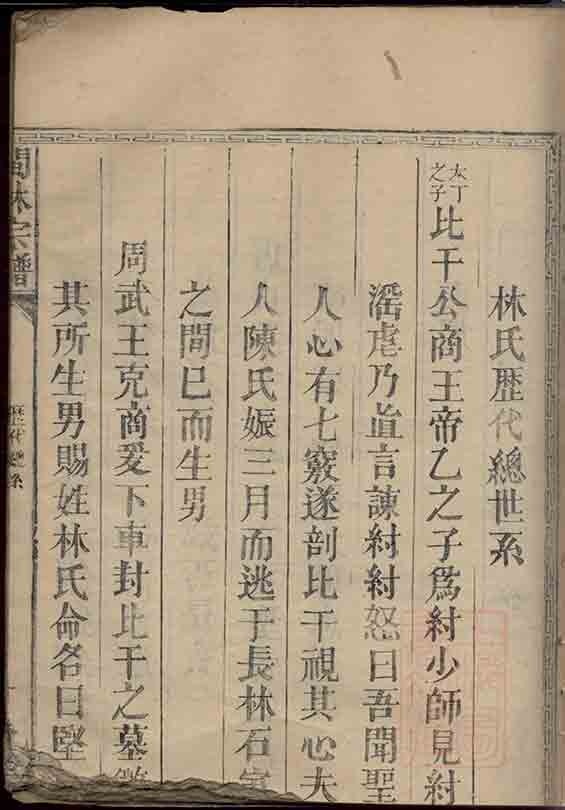 林氏歷代總世系
太丁之子
比干公商王帝乙之子為紂少師見紂
滛虐乃直言諫紂紂怒曰吾聞聖
人心有七竅遂剖比干視其心夫
人陳氏娠三月而逃于長林石室
之間已而生男
周武王克商爰下車封比干之墓
其所生男賜姓林氏命名曰堅
林宗譜
歷代總世系